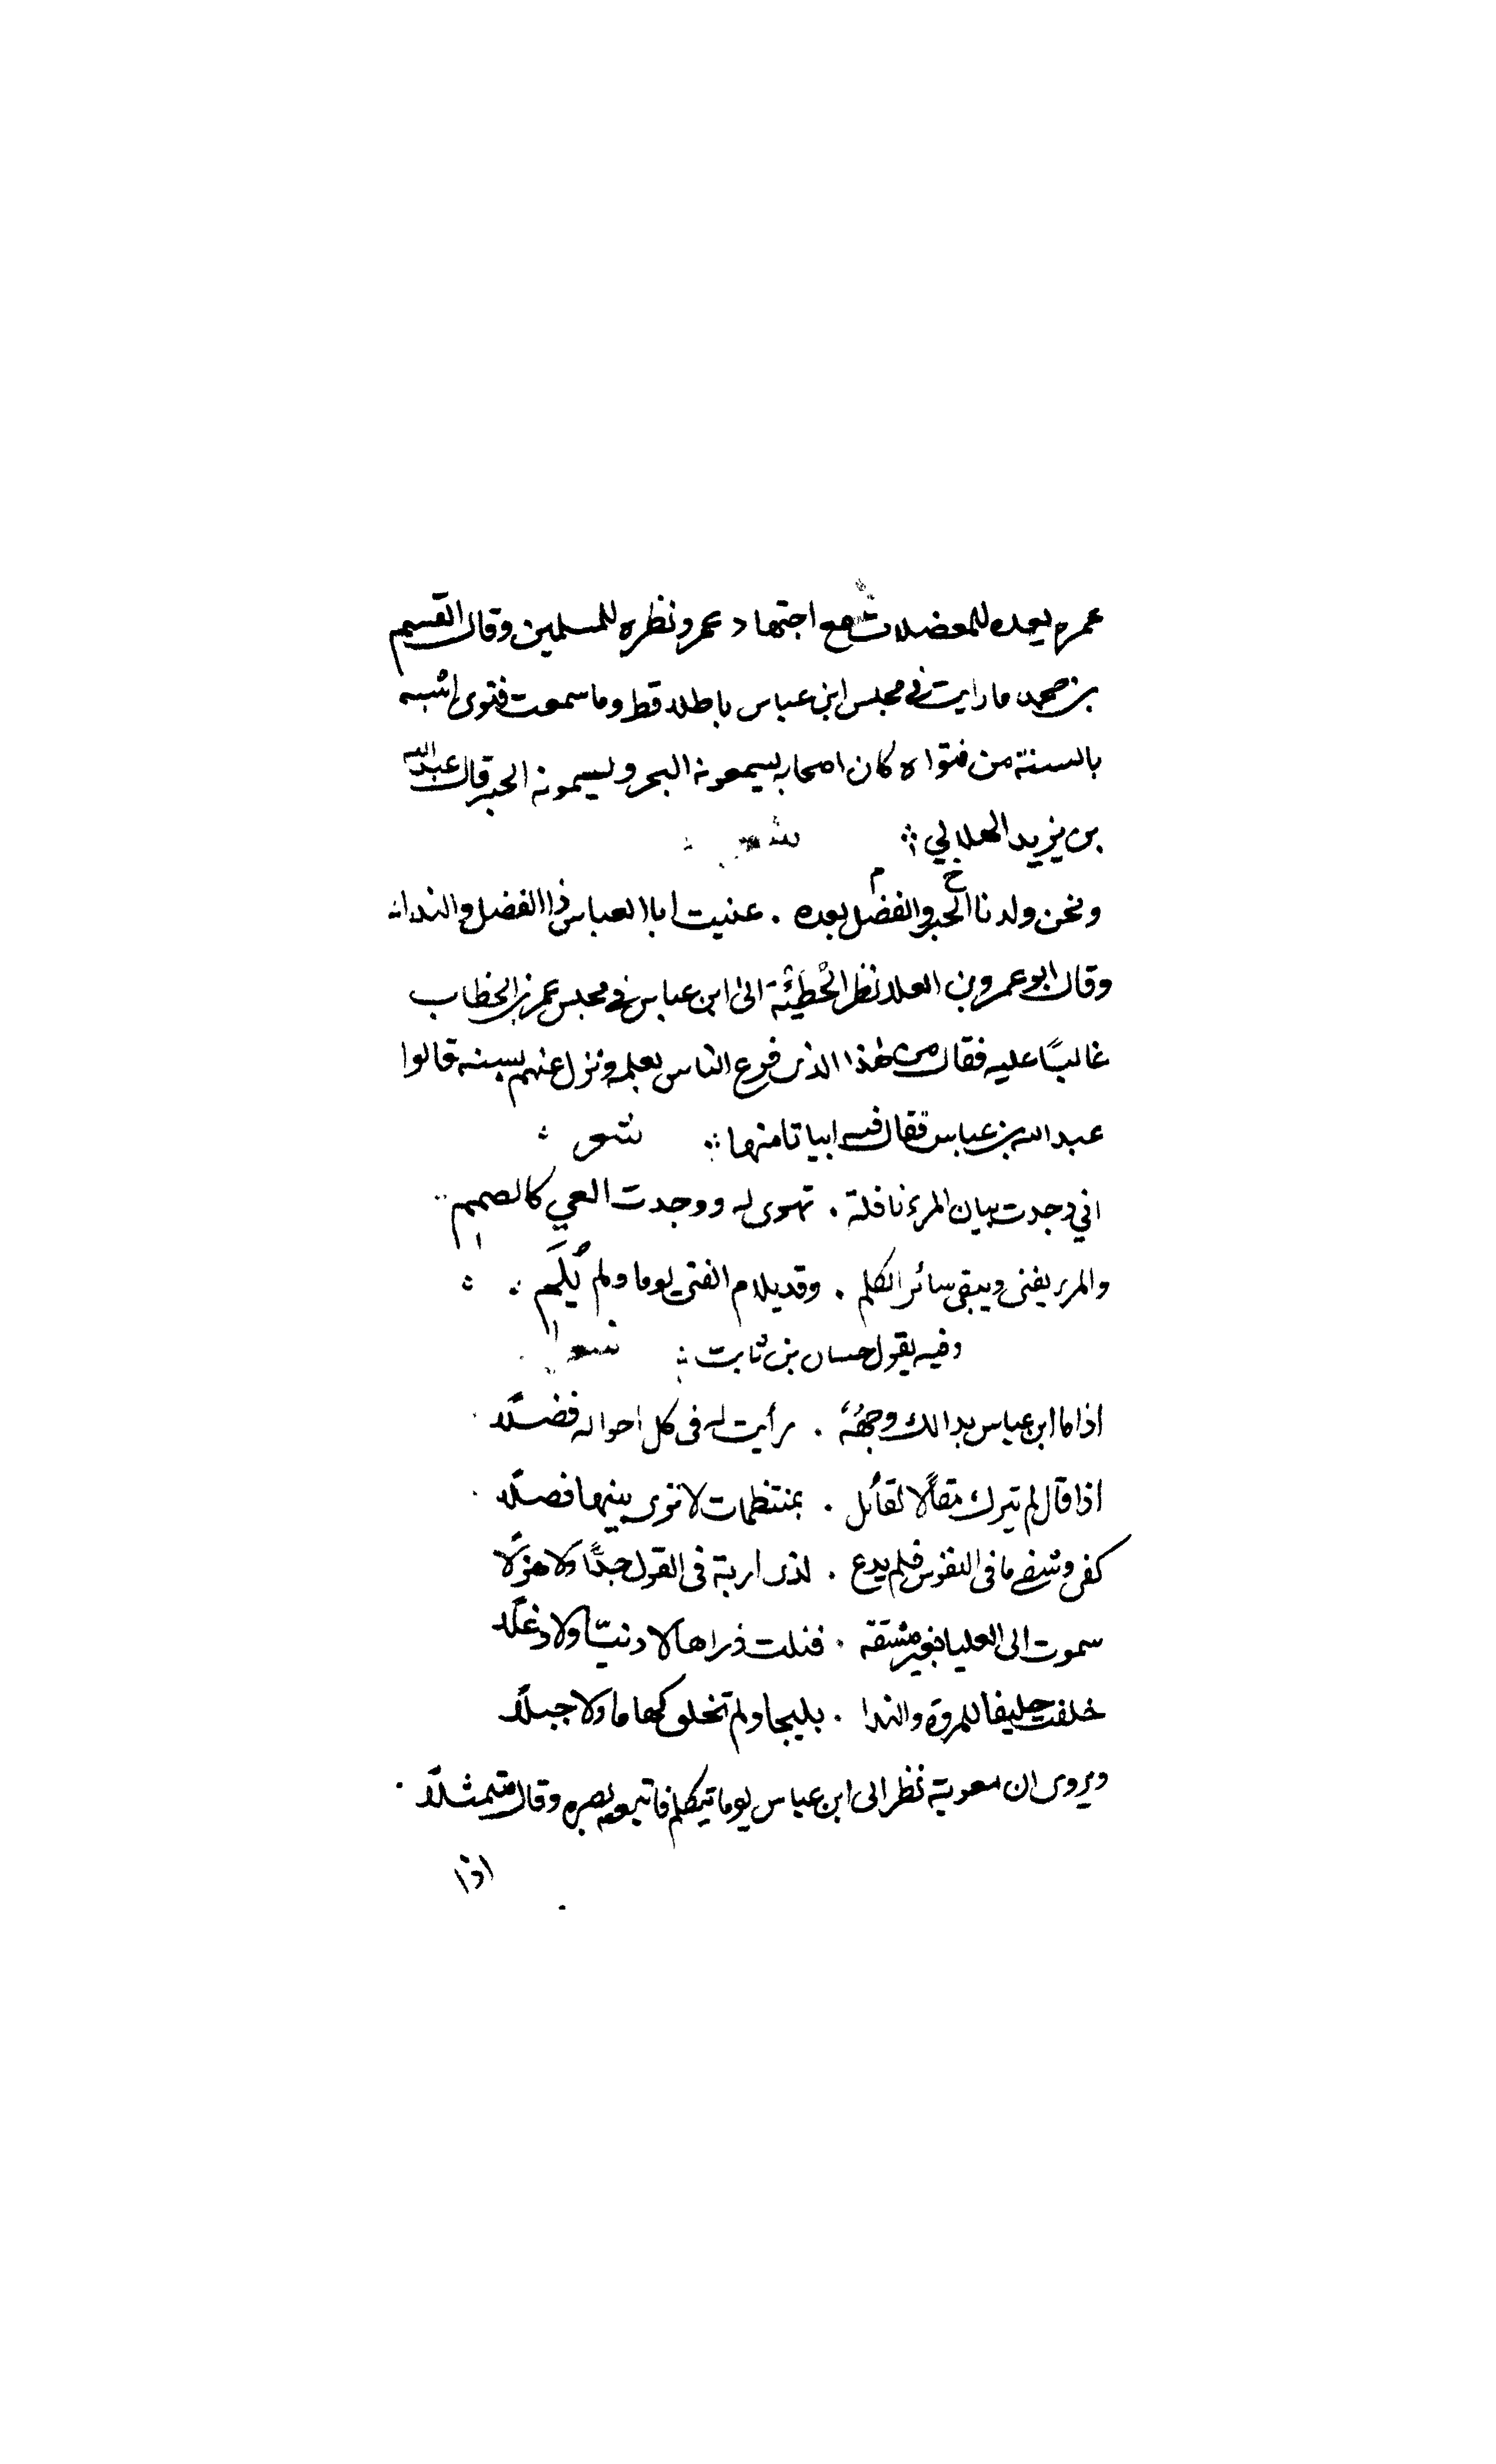 عمر يعده للمعضلات مع اجتهاد عمر ونظره للمسلمين وقال القسم
بن محمد ما رايت في مجلس ابن عباس باطلا قط وما سمعت فتوى اشبه
بالسنة من فتواه كان اصحابه يسمونه البحر ويسمونه الحبر قال عبد الله
بن يزيد الهلالي
شعر
ونحن ولدنا الحبر والفضل بعده . عنيت ابا العباس ذا الفضل والندا
وقال ابو عمرو بن العلا نظر الْحُطَيْئَة الى ابن عباس في مجلس عمر بن الخطاب
غالبًا عليه فقال من هذا الذى فرع الناس بعلمه ونزل عنهم بسنه قالوا
عبد الله بن عباس فقال فيه ابياتا منها شعر
اني وجدت بيان المرء نافلة . تهوى له ووجدت العي كالصمم
والمرء يفنى ويبقى سائر الكلم . وقد يلام الفتى يوما ولم يُلَم
وفيه يقول حسان بن ثابت شعر
اذا ما ابن عباس بدا لك وجهُهُ . رأيت له فى كل احواله فضلًا
اذا قال لم يترك مقالًا لقائل . بمنتظمات لا ترى بينها فصلًا
كفى وشفى ما فى النفوس فلم يدع . لذى اربة فى القول جدًّا ولا هزلًا
سموت الى العليا بغير مشقة . فنلت ذراها لا دنيًّا ولا وغلًا
خلقت حليفا للمروة والندا . بليجا ولم تخلق كهاما ولا جبلًا
ويروى ان معوية نظر الى ابن عباس يوما يتكلم فاتبعه بصره وقال متمثلًا
اذا